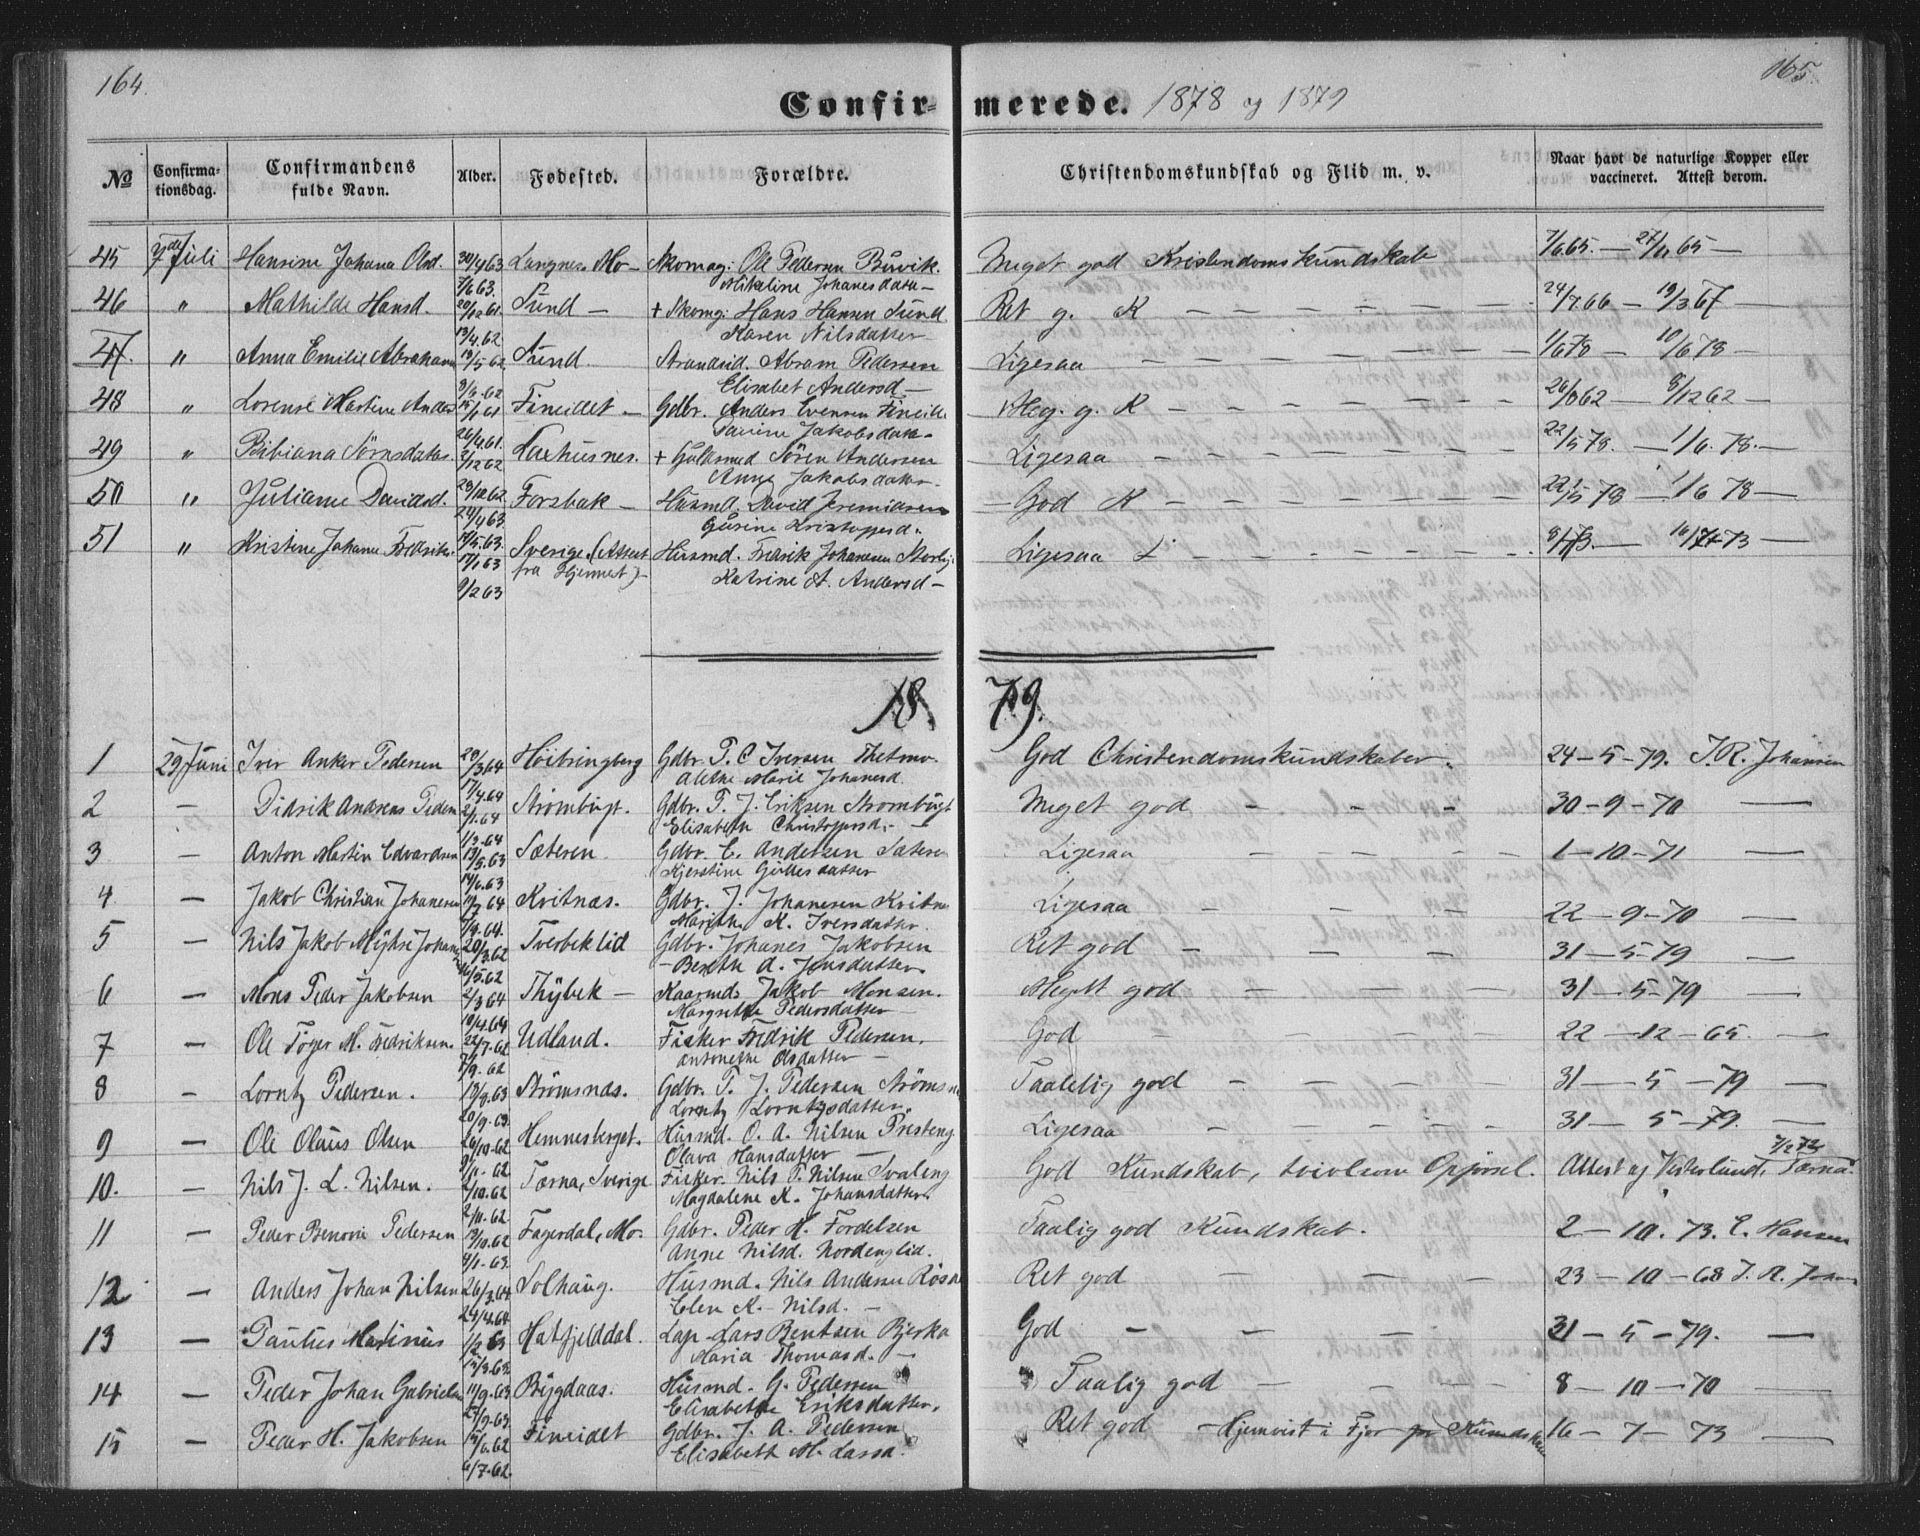 164.
165
Confirmerede. 1878 og 1879
No
Confirmationsdag.
Confirmandens fulde Navn.
Alder.
Fødested.
Forældre.
Christendomskundskab og Flid m. v.
Naar havt de naturlige Kopper eller vaccineret. Attest derom.
45 7de Juli Hansine Johana Olsd. 30/4 63 Langnes Mo — Skomag: Ole Pedersen Buvik. Meget god Kristendomskundskab 7/6 65. — 65 —
7/6 63. Mikeline Johanesdatr —
46 " Mathilde Hansd. 20/12 61. Sund — + Skomg: Hans Hansen Sund Ret g. K — — — 24/7 66 — 19/3 67 —
13/4 62 Karen Nilsdatter —
47. " Anna Emilie Abraham 18/5 62 Sund. Strandsid. Abram Pedersen Ligesaa — — — 1/6 78 — 10/6 78 —
8/6 62 Elisabet Andersd —
48 " Lorense Martine Anders Fineidet — Gdbr. Anders Evensen Fineide Meg. g. K — — — 62 — 8/12 62 —
26/4 61. Jakobsdatr —
49 " Bibiana Sørnsdatter. 2/12 62 Laxhusnes. + Guldsmed Sören Andersen Ligesaa — — — 22/5 78. — 1/6. 78. —
28/12 62 Anne Jakobsdatr —
50 " Julianne Davidsd. 24/4 63. Forsbak — Husmd. David Jeremiasen God K — — — 22/5 78 — 1/6 78 —
17/5 63. Gurine Kristoffersd.
51 " Kristine Johanne Fredriks. 17/1 63 Sverige (Attest fra Hjemmet) — Husmd. Fredrik Johansen Storlig. Ligesaa — — — 73 —
9/2 63 Katrine A. Andersd —
1879.
1 29 Juni Iver Anker Pedersen 20/3 64 Høibringberg Gdbr. P. C Iversen Thetmo. God Christendomskundskaber. 24–5–79. J. R. Johansen
17/4 64 Alethe Marie Johanesd.
2 — Didrik Andreas Peders 2/1 64 Strømbugt. Gdbr. P. J. Eriksen Strømbugt Meget god — — — 30–9–70 —
1/3 64 Elisabeth Christoffersd. —
3 — Anton Martin Edvardsen 13/5 63 Sæteren. Gdbr. E. Andersen Sætere Ligesaa — — — 1–10–71 —
14/6 63 Kjerstine Gullesdatter
4 — Jakob Christian Johanesen 64 Kvitnæs. Gdbr. J. Johanesen Kvitne Ligesaa — — — 22–9–70 —
64. Marithe K. Iversdatter.
5 — Nils Jakob Johan 20/3 62 Tverbeklid Gdbr. Johanes Jakobsen Ret god — — — 31–5–79 —
16/5 62 — Berethe A. Jonsdatter
6 — Mons Peder Jakobsen 2/3 64 Thybek — Kaarmd. Jakob Monsen. Megett god — — — 31–5–79 —
10/4 64 Margrethe Pedersdatter —
7 — Ole Töger M. Fredriksen. 22/7 62 Udland. Fisker Fredrik Pedersen. God — — — 22–12–65. —
7/9 62 Antonethe Olsdatter —
8 — Lorntz Pedersen. 19/9 63 Strømsnæs. Gdbr. P. J. Pedersen Strømsn Taalelig god — — — 31–5–79 —
20/9 63. Lorntz Lorntzsdatter.
9 — Ole Olaus Olsen 26/10 62 Hemnesberget. Husmd. O. A. Nilsen Presteng Ligesaa — — — 31–5–79. —
9/11 62 Olava Hansdatter —
10. — Nils J. L. Nilsen. 2/10 62 Tærna, Sverige Fisker. Nils P. Nilsen Svaleng God Kundskab, tvivlsom Opførsel. Attest af Vesterlund, Tærna.
2/11 62 Magdalene K. Johansdatter.
11 — Peder Benoni Pedersen 19/10 62 Fagerdal, Mo. Gdbr. Peder H. Fordelsen Taalig god Kundskab. 2–10. 73. E. Hansen
4/1 63. Anne Nilsd. Nordenglid.
12 — Anders Johan Nilsen 26/3 64 Solhaug. Husmd. Nils Andersen Røsaa Ret god — — — 23–10–68 J. R. Johan
24/4 64 Elen K. Nilsd. —
13 — Paulus Martinus 1/2 63 Hatfjelddal. Lap Lars Bentsen Bjerka God — — — 31–5–79. —
15/3 63. Maria Thomasd. —
14 — Peder Johan Gabrielsen 11/9 63 Bygdaas. Husmd. G. Pedersen Taalig god — — — 8–10–70 —
27/9 63. Elisabethe Eriksdatter.
15 — Peder H. Jakobsen 15/6 62 Fineidet Gdbr. J. A. Pedersen Ret god — Hjemvist i Fjor for Kundskab 16–7–73 —
6/7 62. Elisabeth M. Larsd.